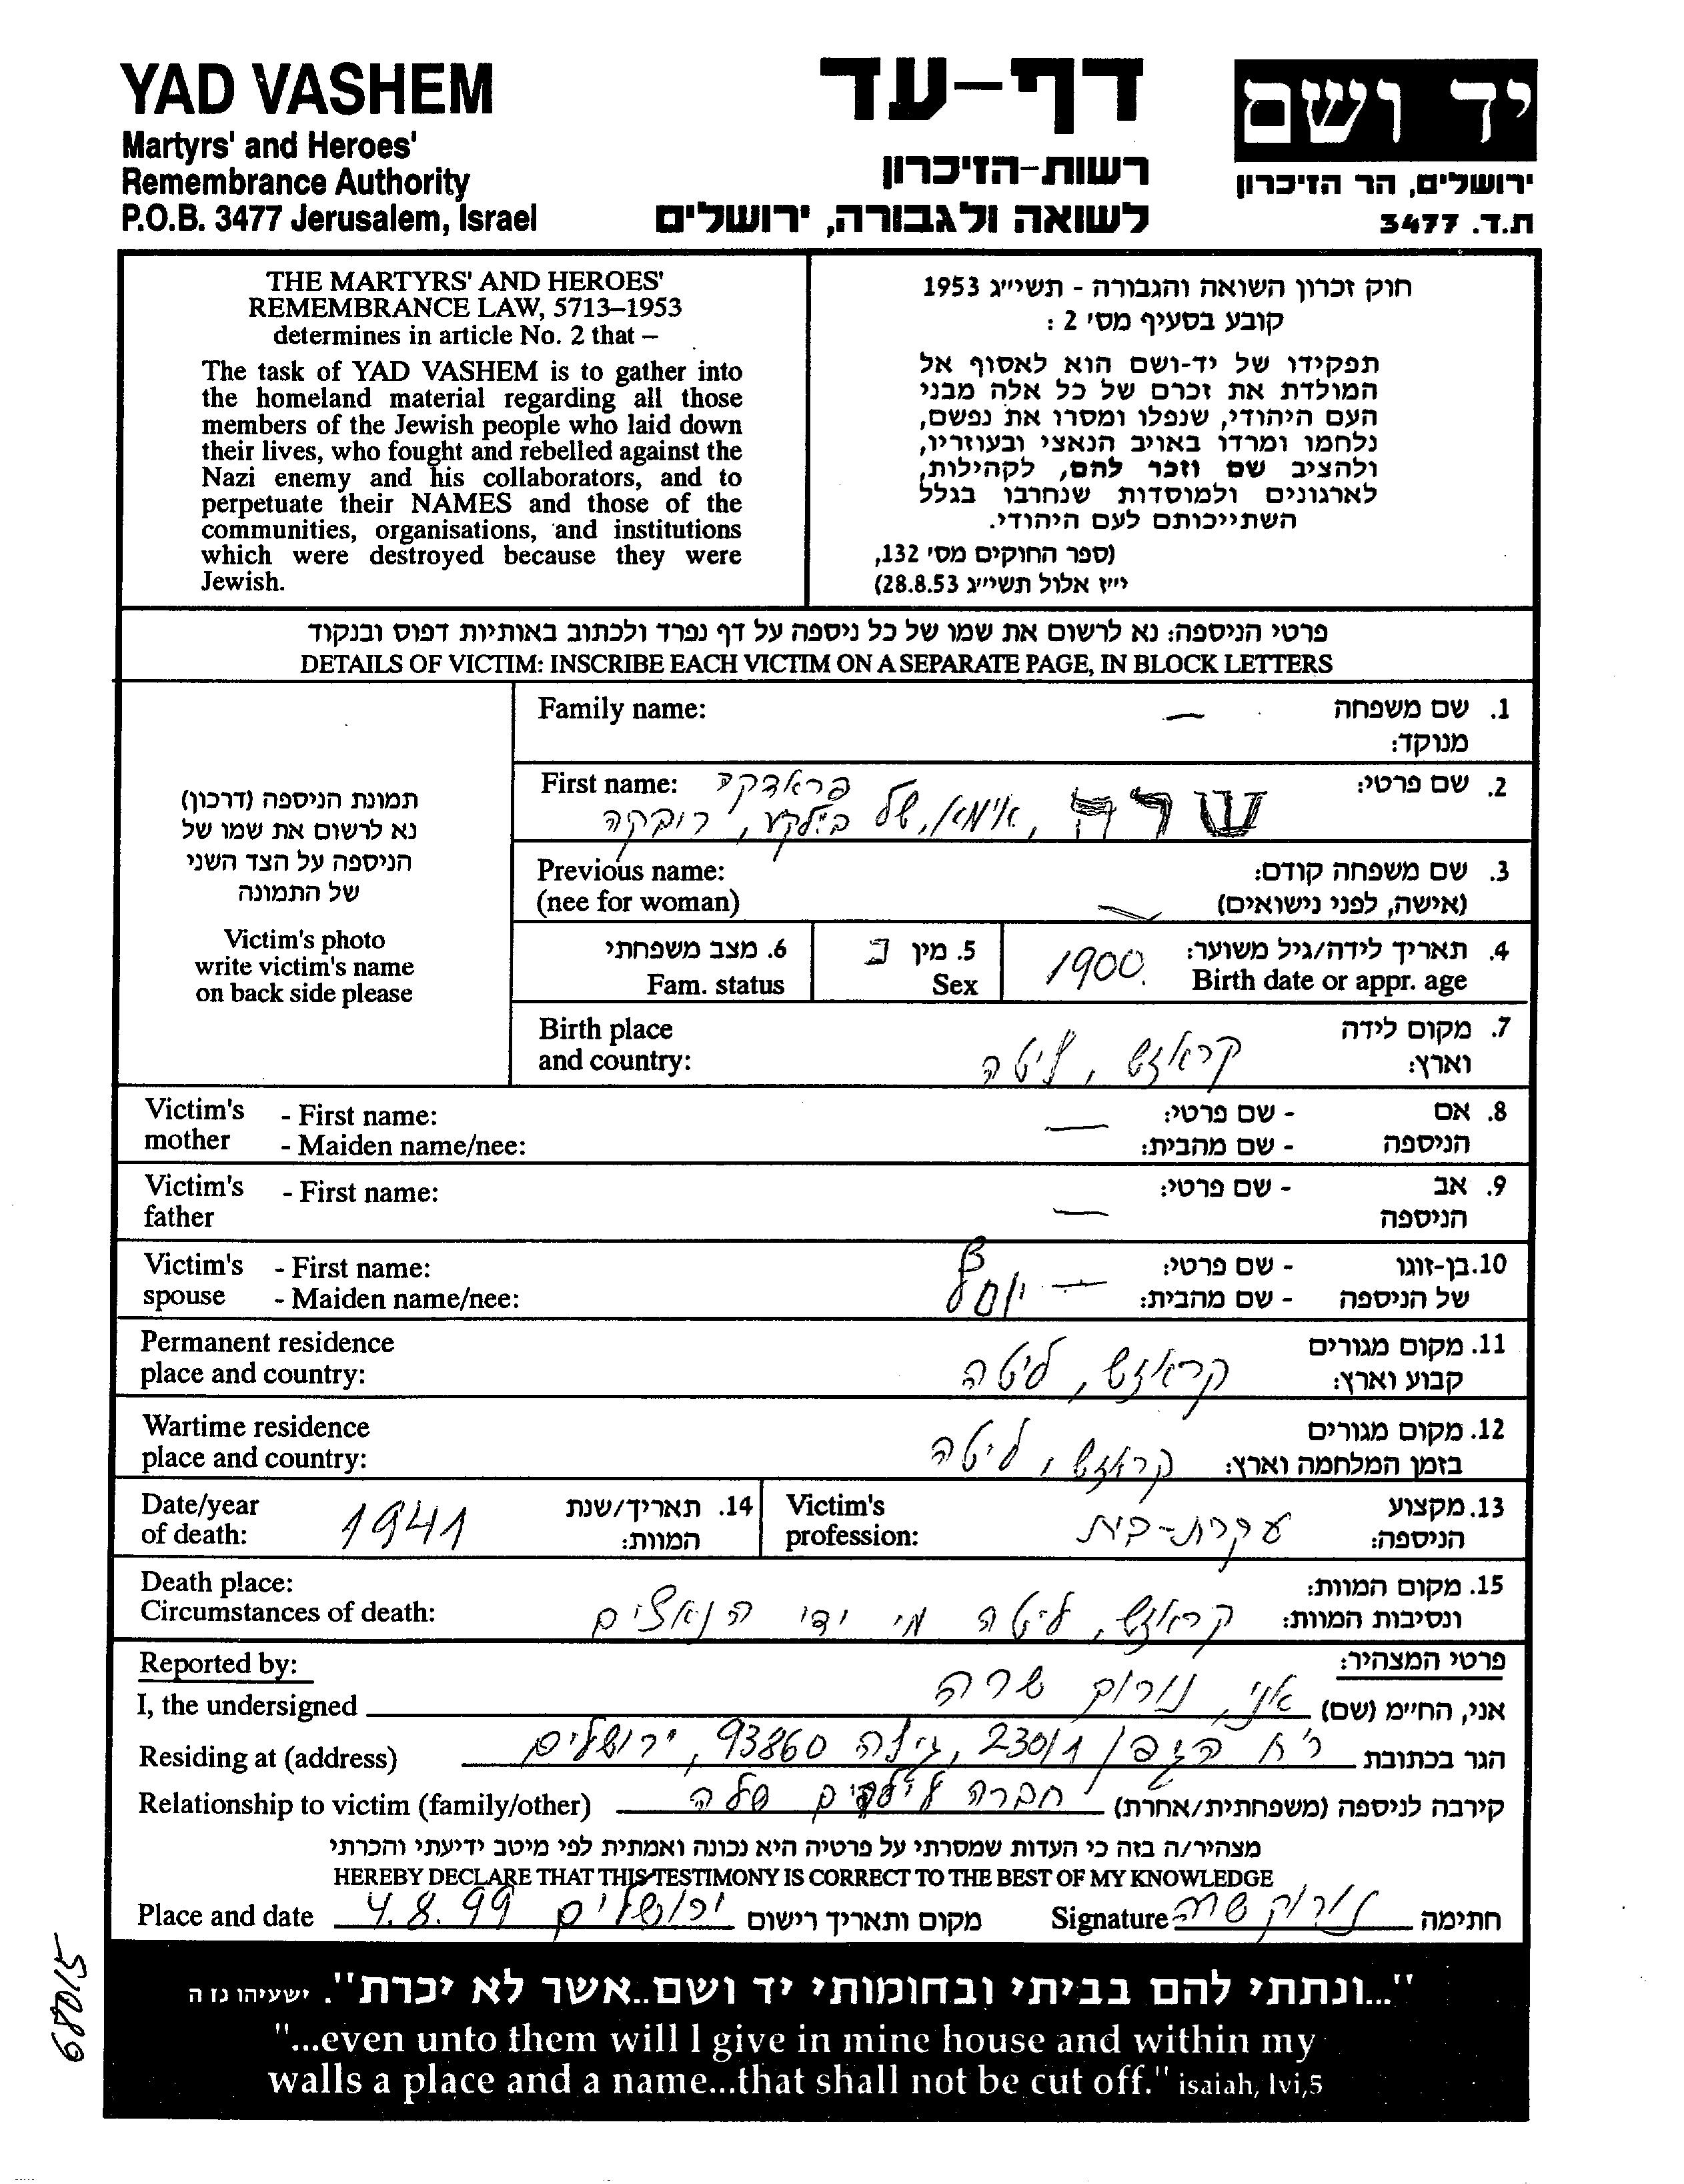 YAD VASHEM
Martyrs' and Heroes'
Remembrance Authority
P.O.B. 3477 Jerusalem, Israel
דף-עד
רשות-הזיכרון
לשואה ולגבורה, ירושלים
יד ושם
ירושלים, הר הזיכרון
ת.ד. 3477
THE MARTYRS' AND HEROES'
REMEMBRANCE LAW, 5713–1953
determines in article No. 2 that –
The task of YAD VASHEM is to gather into
the homeland material regarding all those
members of the Jewish people who laid down
their lives, who fought and rebelled against the
Nazi enemy and his collaborators, and to
perpetuate their NAMES and those of the
communities, organisations, and institutions
which were destroyed because they were
Jewish.
חוק זכרון השואה והגבורה - תשי״ג 1953
קובע בסעיף מס׳ 2 :
תפקידו של יד-ושם הוא לאסוף אל
המולדת את זכרם של כל אלה מבני
העם היהודי, שנפלו ומסרו את נפשם,
נלחמו ומרדו באויב הנאצי ובעוזריו,
ולהציב שם וזכר להם, לקהילות,
לארגונים ולמוסדות שנחרבו בגלל
השתייכותם לעם היהודי.
(ספר החוקים מס׳ 132,
י״ז אלול תשי״ג 28.8.53)
פרטי הניספה: נא לרשום את שמו של כל ניספה על דף נפרד ולכתוב באותיות דפוס ובנקוד
DETAILS OF VICTIM: INSCRIBE EACH VICTIM ON A SEPARATE PAGE, IN BLOCK LETTERS
תמונת הניספה (דרכון)
נא לרשום את שמו של
הניספה על הצד השני
של התמונה
Victim's photo
write victim's name
on back side please
Family name: — 1. שם משפחה
מנוקד:
First name: 2. שם פרטי:
שרה, אימא של ביילקע, ריבקה
Previous name: 3. שם משפחה קודם:
(nee for woman) (אישה, לפני נישואים)
4. תאריך לידה/גיל משוער: 1900. 5. מין נ 6. מצב משפחתי
Birth date or appr. age Sex Fam. status
Birth place 7. מקום לידה
and country: קראזש, ליטה וארץ:
Victim's - First name: - שם פרטי: 8. אם
mother - Maiden name/nee: — - שם מהבית: הניספה
Victim's - First name: - שם פרטי: 9. אב
father — הניספה
Victim's - First name: - שם פרטי: 10. בן-זוגו
spouse - Maiden name/nee: — - שם מהבית: של הניספה
Permanent residence 11. מקום מגורים
place and country: קראזש, ליטה קבוע וארץ:
Wartime residence 12. מקום מגורים
place and country: קראזש, ליטה בזמן המלחמה וארץ:
Date/year 1941 14. תאריך/שנת Victim's 13. מקצוע
of death: המוות: profession: עקרת-בית הניספה:
Death place: 15. מקום המוות:
Circumstances of death: קראזש, ליטה מי ידי הנאצים ונסיבות המוות:
Reported by: פרטי המצהיר:
I, the undersigned אני, נורוק שרה אני, החי״מ (שם)
Residing at (address) רח הגפן 230/1, גילה 93860, ירושלים הגר בכתובת
Relationship to victim (family/other) חברה סלה קירבה לניספה (משפחתית/אחרת)
מצהיר/ה בזה כי העדות שמסרתי על פרטיה היא נכונה ואמתית לפי מיטב ידיעתי והכרתי
HEREBY DECLARE THAT THIS TESTIMONY IS CORRECT TO THE BEST OF MY KNOWLEDGE
Place and date 4.8.99 ירושלים מקום ותאריך רישום Signature נורוק שרה חתימה
"...ונתתי להם בביתי ובחומותי יד ושם..אשר לא יכרת". ישעיהו נז ה
"...even unto them will I give in mine house and within my
walls a place and a name...that shall not be cut off." isaiah, lvi,5